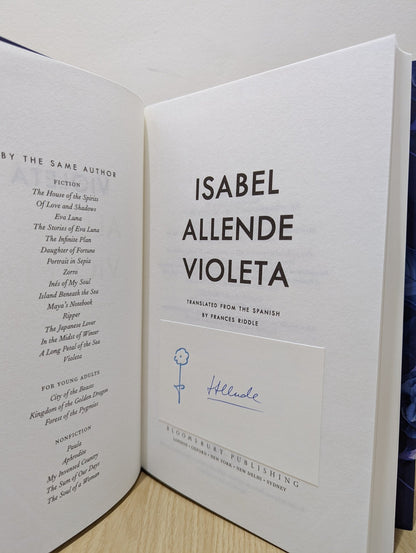 BY THE SAME AUTHOR
FICTION
The House of the Spirits
Of Love and Shadows
Eva Luna
The Stories of Eva Luna
The Infinite Plan
Daughter of Fortune
Portrait in Sepia
Zorro
Inés of My Soul
Island Beneath the Sea
Maya's Notebook
Ripper
The Japanese Lover
In the Midst of Winter
A Long Petal of the Sea
Violeta
FOR YOUNG ADULTS
City of the Beasts
Kingdom of the Golden Dragon
Forest of the Pygmies
NONFICTION
Paula
Aphrodite
My Invented Country
The Sum of Our Days
The Soul of a Woman
ISABEL
ALLENDE
VIOLETA
TRANSLATED FROM THE SPANISH
BY FRANCES RIDDLE
IAllende
BLOOMSBURY PUBLISHING
LONDON • OXFORD • NEW YORK • NEW DELHI • SYDNEY